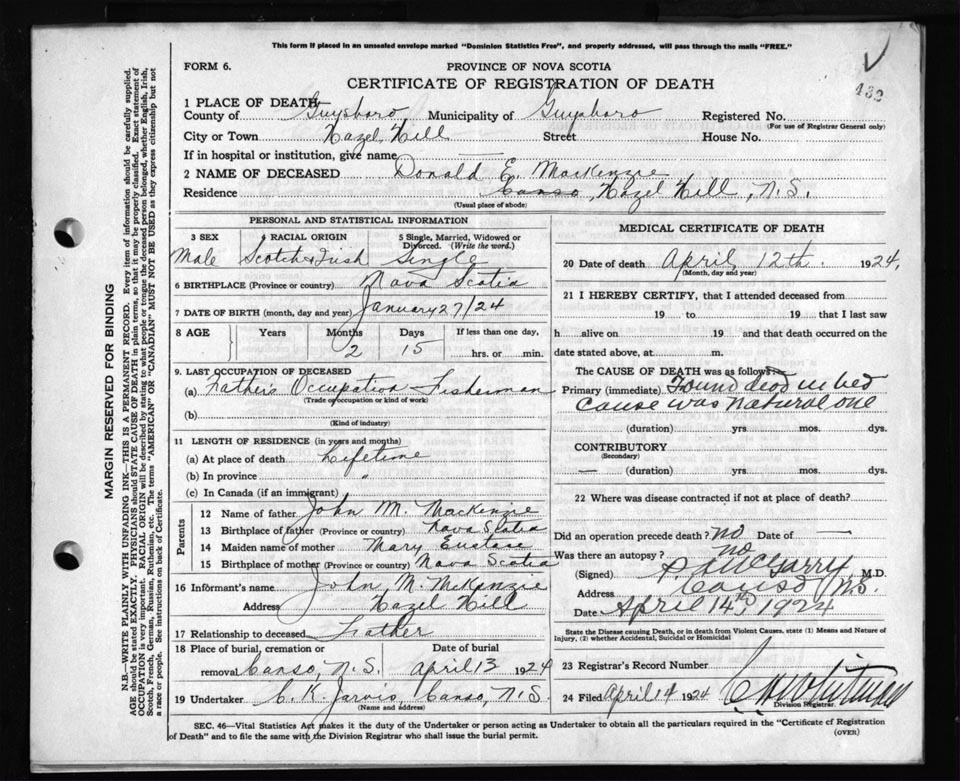 This form if placed in an unsealed envelope marked "Dominion Statistics Free", and properly addressed, will pass through the mails "FREE."
FORM 6.
PROVINCE OF NOVA SCOTIA
432
CERTIFICATE OF REGISTRATION OF DEATH
1 PLACE OF DEATH
County of Guysboro Municipality of Guysboro Registered No.
(For use of Registrar General only)
City or Town Hazel Hill Street House No.
If in hospital or institution, give name
2 NAME OF DECEASED Donald E. MacKenzie
Residence Canso, Hazel Hill, N.S.
(Usual place of abode)
PERSONAL AND STATISTICAL INFORMATION
3 SEX 4 RACIAL ORIGIN 5 Single, Married, Widowed or Divorced. (Write the word.)
Male Scotch & Irish Single
6 BIRTHPLACE (Province or country) Nova Scotia
7 DATE OF BIRTH (month, day and year) January 27/24
8 AGE Years Months Days If less than one day,
2 15 hrs. or min.
9. LAST OCCUPATION OF DECEASED
(a) Father's Occupation - Fisherman
(Trade occupation or kind of work)
(b)
(Kind of industry)
11 LENGTH OF RESIDENCE (in years and months)
(a) At place of death Lifetime
(b) In province "
(c) In Canada (if an immigrant)
Parents
12 Name of father John M. MacKenzie
13 Birthplace of father (Province or country) Nova Scotia
14 Maiden name of mother Mary Eustace
15 Birthplace of mother (Province or country) Nova Scotia
16 Informant's name John M. McKenzie
Address Hazel Hill
17 Relationship to deceased Father
18 Place of burial, cremation or Date of burial
removal Canso, N.S. April 13 1924
19 Undertaker C. K. Jarvis, Canso, N.S.
(Name and address)
MEDICAL CERTIFICATE OF DEATH
20 Date of death April, 12th. 1924,
(Month, day and year)
21 I HEREBY CERTIFY, that I attended deceased from
19 to 19 that I last saw
h alive on 19 and that death occurred on
date stated above, at m.
The CAUSE OF DEATH was as follows:
Primary (immediate) Found dead in bed
cause was natural one
(duration) yrs. mos. dys.
CONTRIBUTORY
(Secondary)
— (duration) yrs. mos. dys.
22 Where was disease contracted if not at place of death?
Did an operation precede death? no Date of —
Was there an autopsy? no
(Signed) McGarry M.D.
Address Canso N.S.
Date April 14th 1924
State the Disease causing Death, or in death from Violent Causes, state (1) Means and Nature of
Injury, (2) whether Accidental, Suicidal or Homicidal
23 Registrar's Record Number
24 Filed April 14 1924 Whitman
Division Registrar.
SEC. 46—Vital Statistics Act makes it the duty of the Undertaker or person acting as Undertaker to obtain all the particulars required in the "Certificate of Registration
of Death" and to file the same with the Division Registrar who shall issue the burial permit.
(OVER)
MARGIN RESERVED FOR BINDING
N.B.—WRITE PLAINLY WITH UNFADING INK—THIS IS A PERMANENT RECORD. Every item of information should be carefully supplied.
AGE should be stated EXACTLY. PHYSICIANS should STATE CAUSE OF DEATH in plain terms, so that it may be properly classified. Exact statement of
OCCUPATION is very important. RACIAL ORIGIN will be described by stating to what people or tongue the deceased person belonged, whether English, Irish,
Scotch, French, German, Russian, Ruthenian, etc. The terms "AMERICAN" OR "CANADIAN" MUST NOT BE USED as they express citizenship but not
a race or people. See instructions on back of Certificate.